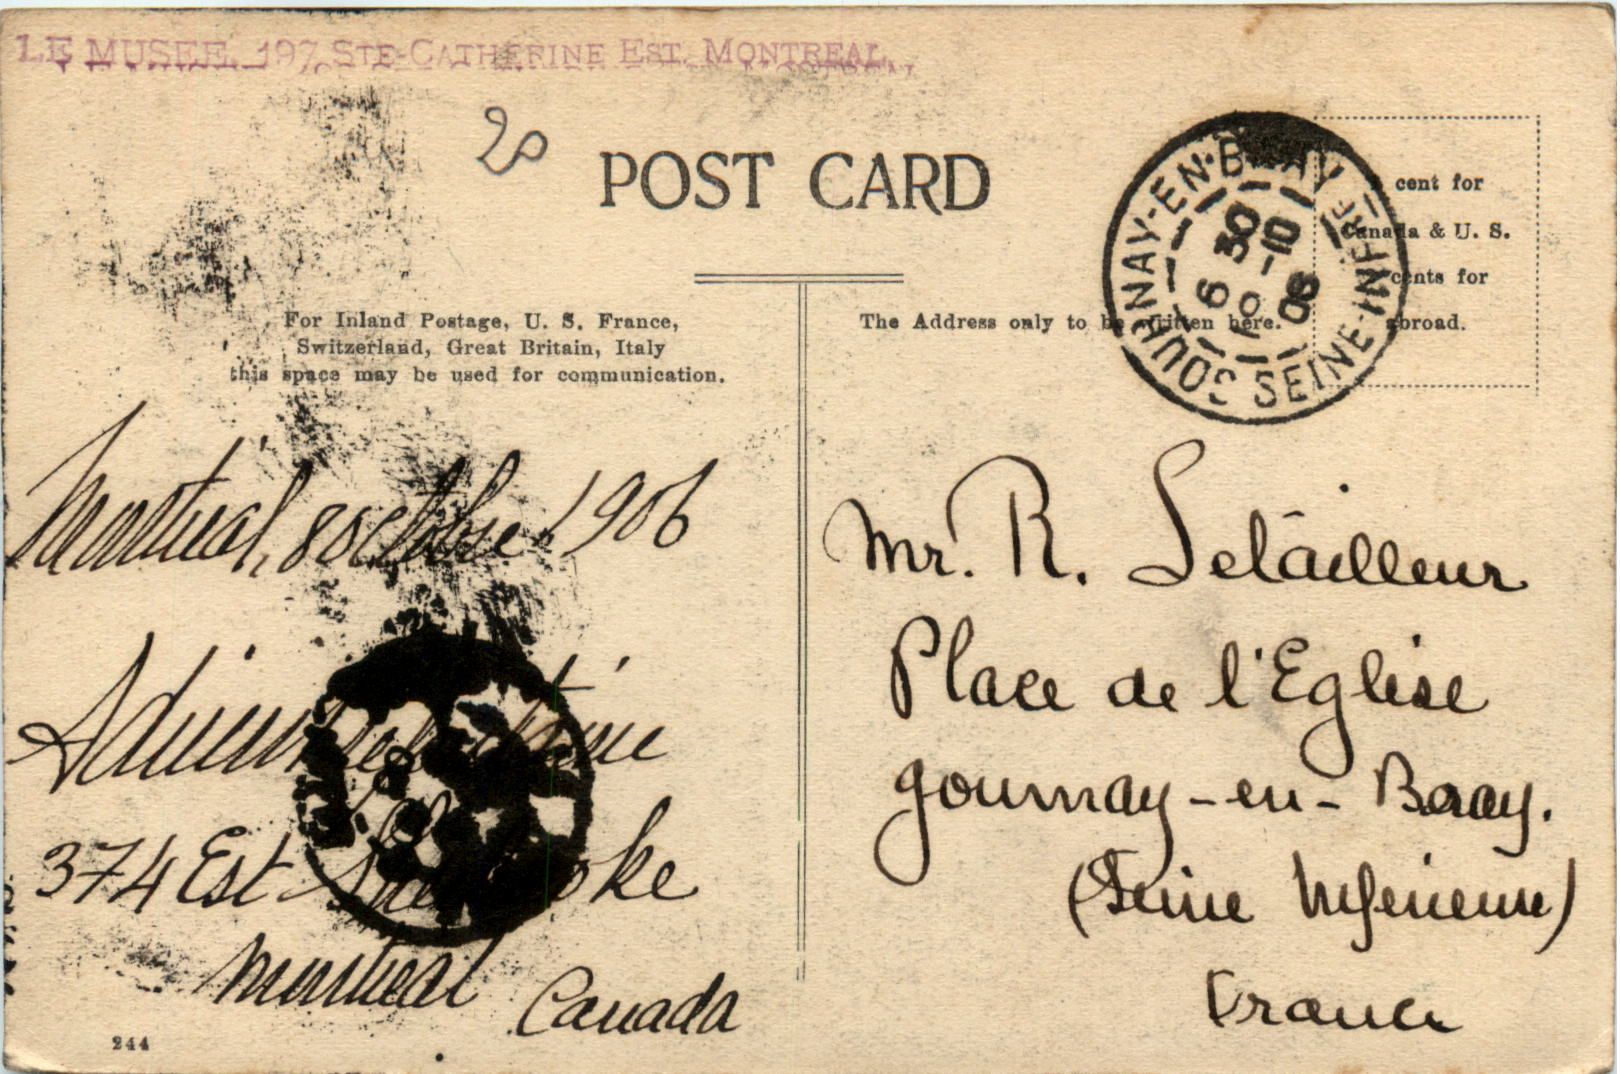 LE MUSEE, 197, STE-CATHERINE EST. MONTREAL.
20
POST CARD
cent for
Canada & U. S.
cents for
abroad.
For Inland Postage, U. S. France,
Switzerland, Great Britain, Italy
this space may be used for communication.
The Address only to be written here.
GOURNAY-EN-BRAY
SEINE-INFRE
6 30
10
06
Montréal, 8 octobre 1906
374 Est Sherbrooke
Montreal
Canada
Mr. R. Letailleur
Place de l'Eglise
Gournay-en-Bray.
(Seine Inférieure)
France
244